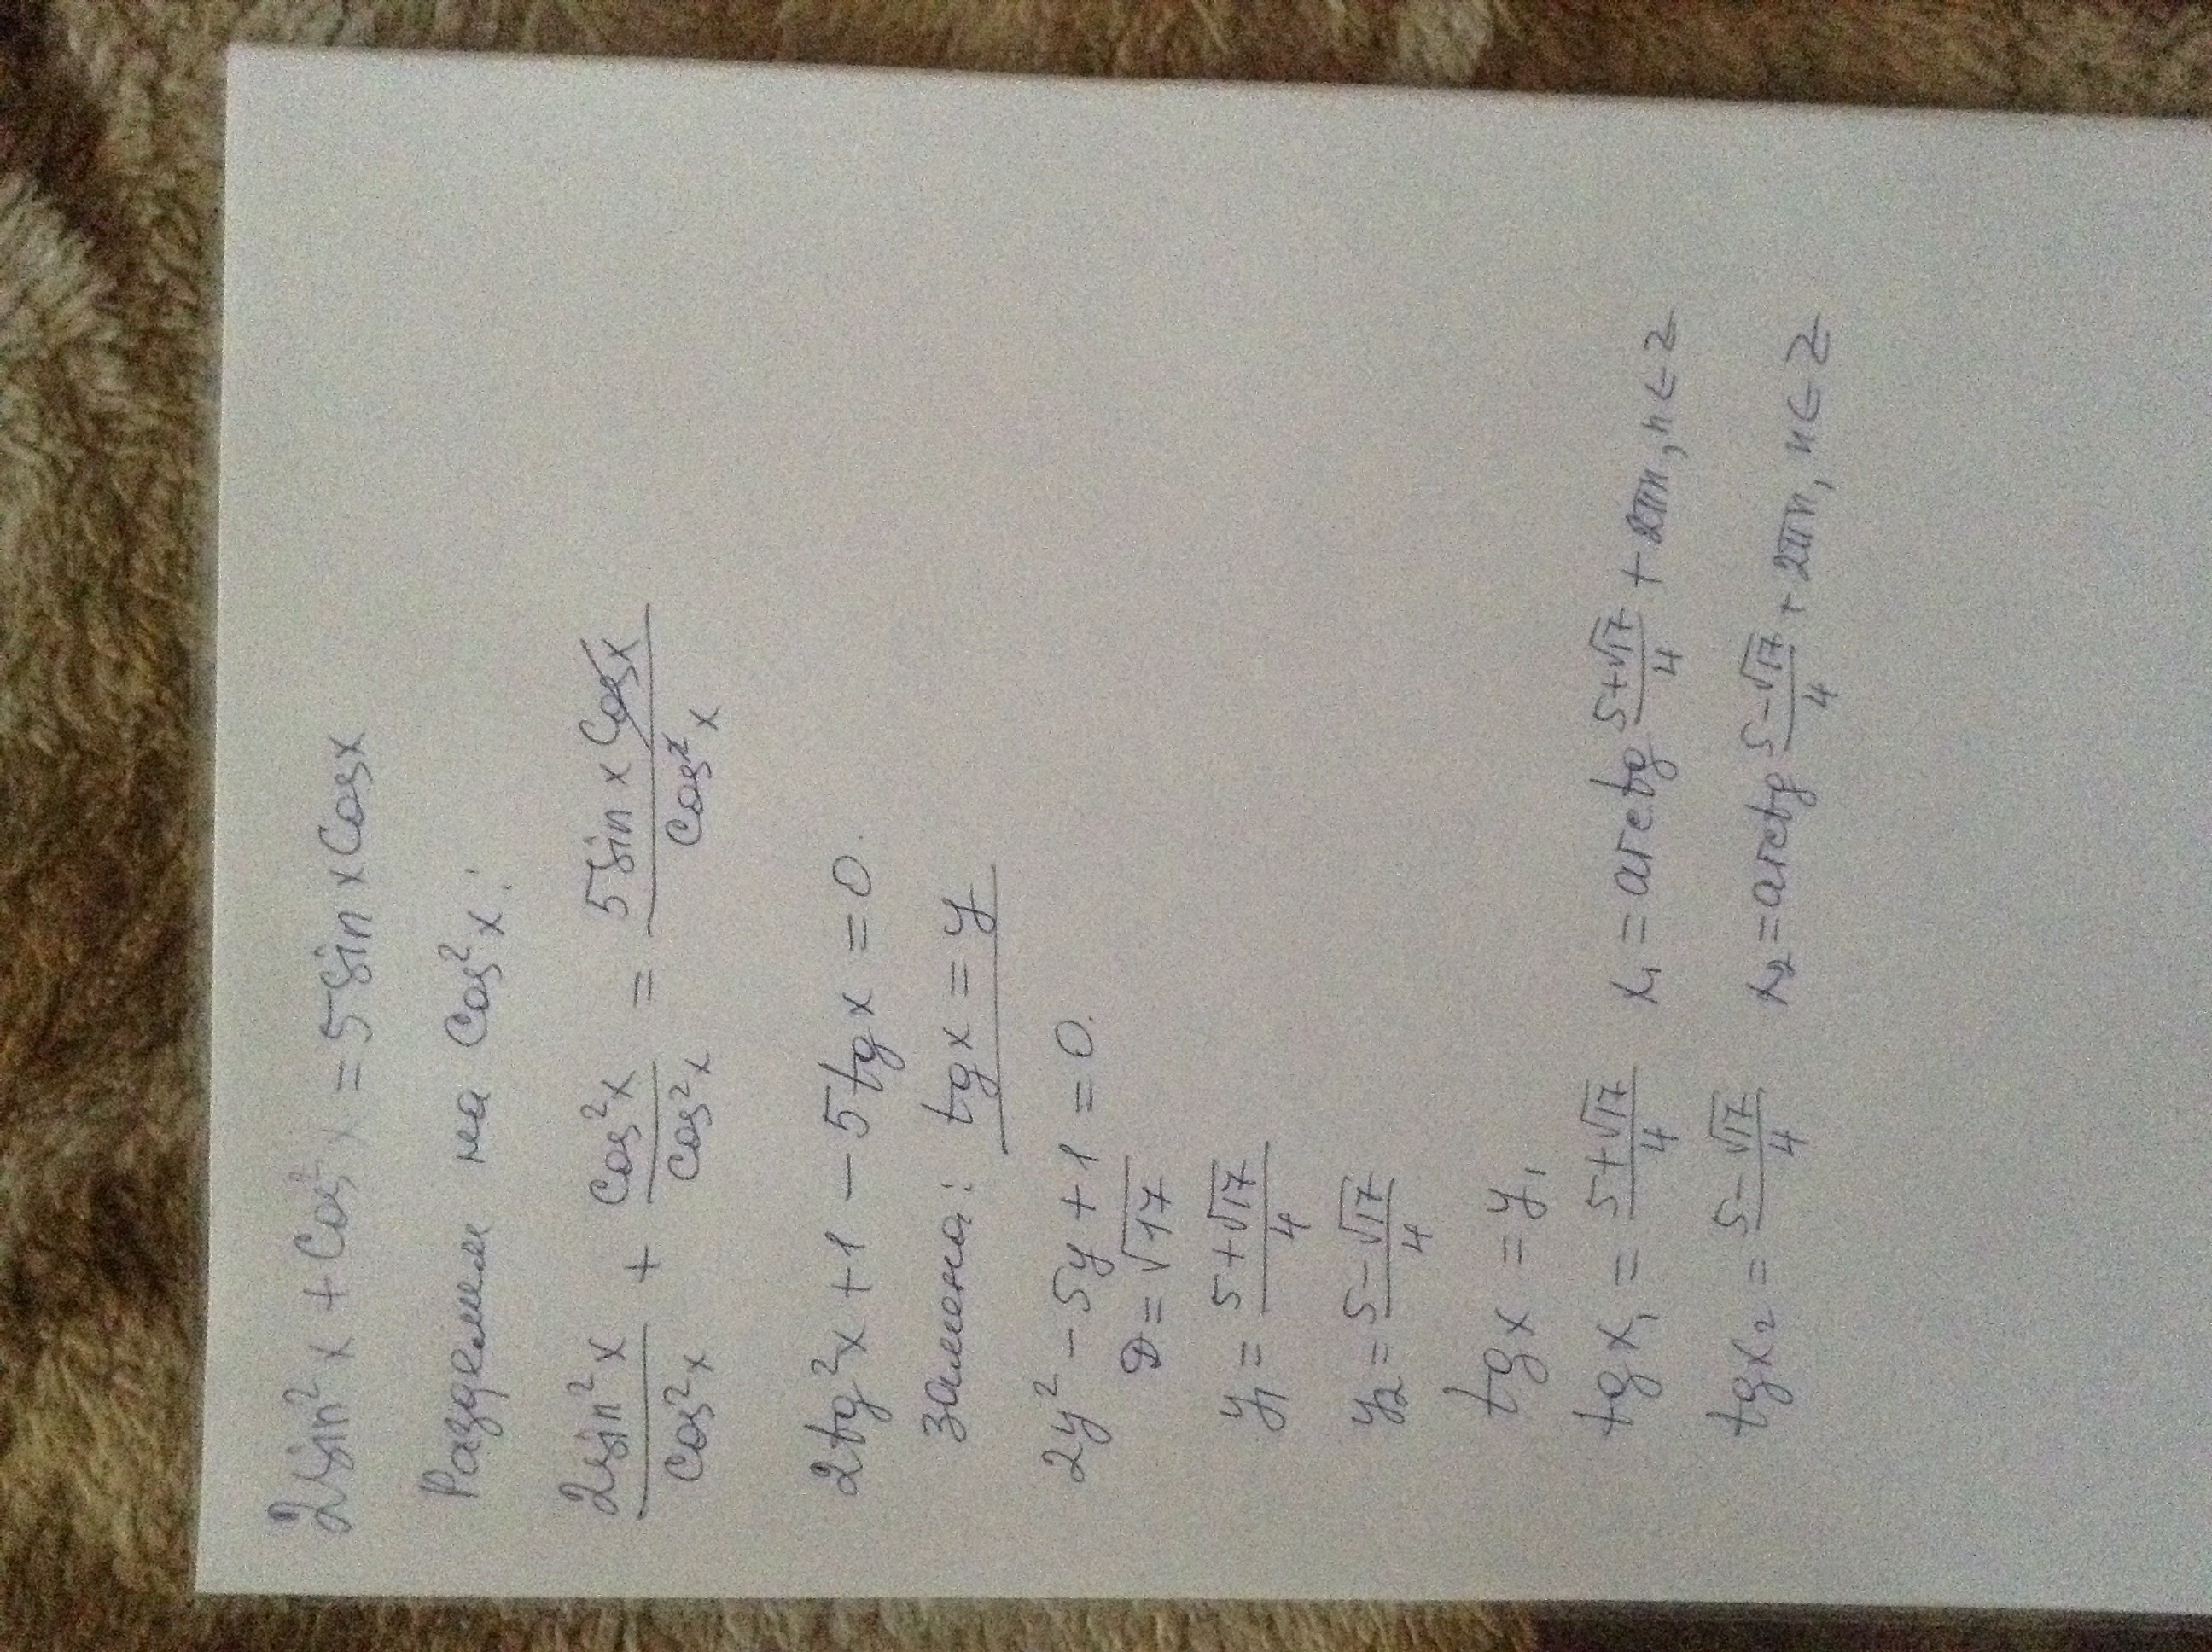 2sin²x + cos²x = 5sin x cosx
Разделим на cos²x:
2sin²x/cos²x + cos²x/cos²x = 5sin x cosx/cos²x
2tg²x + 1 - 5tgx = 0.
замена: tgx = y
2y² - 5y + 1 = 0.
D = √17
y₁ = 5+√17/4
y₂ = 5-√17/4
tgx = y₁
tgx₁ = 5+√17/4 x₁ = arctg 5+√17/4 + 2πn, n∈Z
tgx₂ = 5-√17/4 x₂ = arctg 5-√17/4 + 2πn, n∈Z